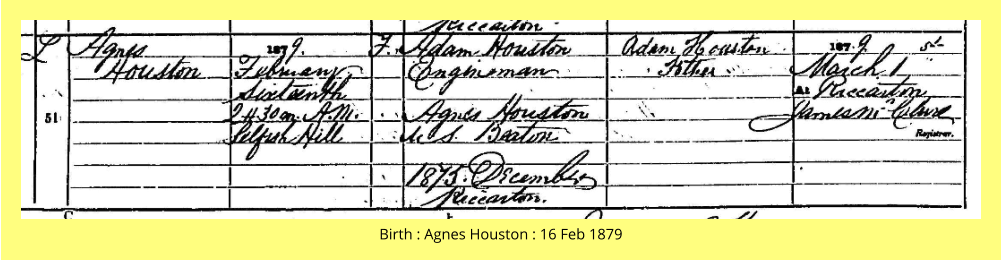 Riccarton.
L Agnes 1879. F. Adam Houston Adam Houston 1879.
Houston February Engineman Father March 1
Sixteenth At Riccarton
51 2 H 30 m A.M. Agnes Houston James McClure
Selfish Hill M. S. Beaton Registrar.
1875. December
Riccarton.
Birth : Agnes Houston : 16 Feb 1879